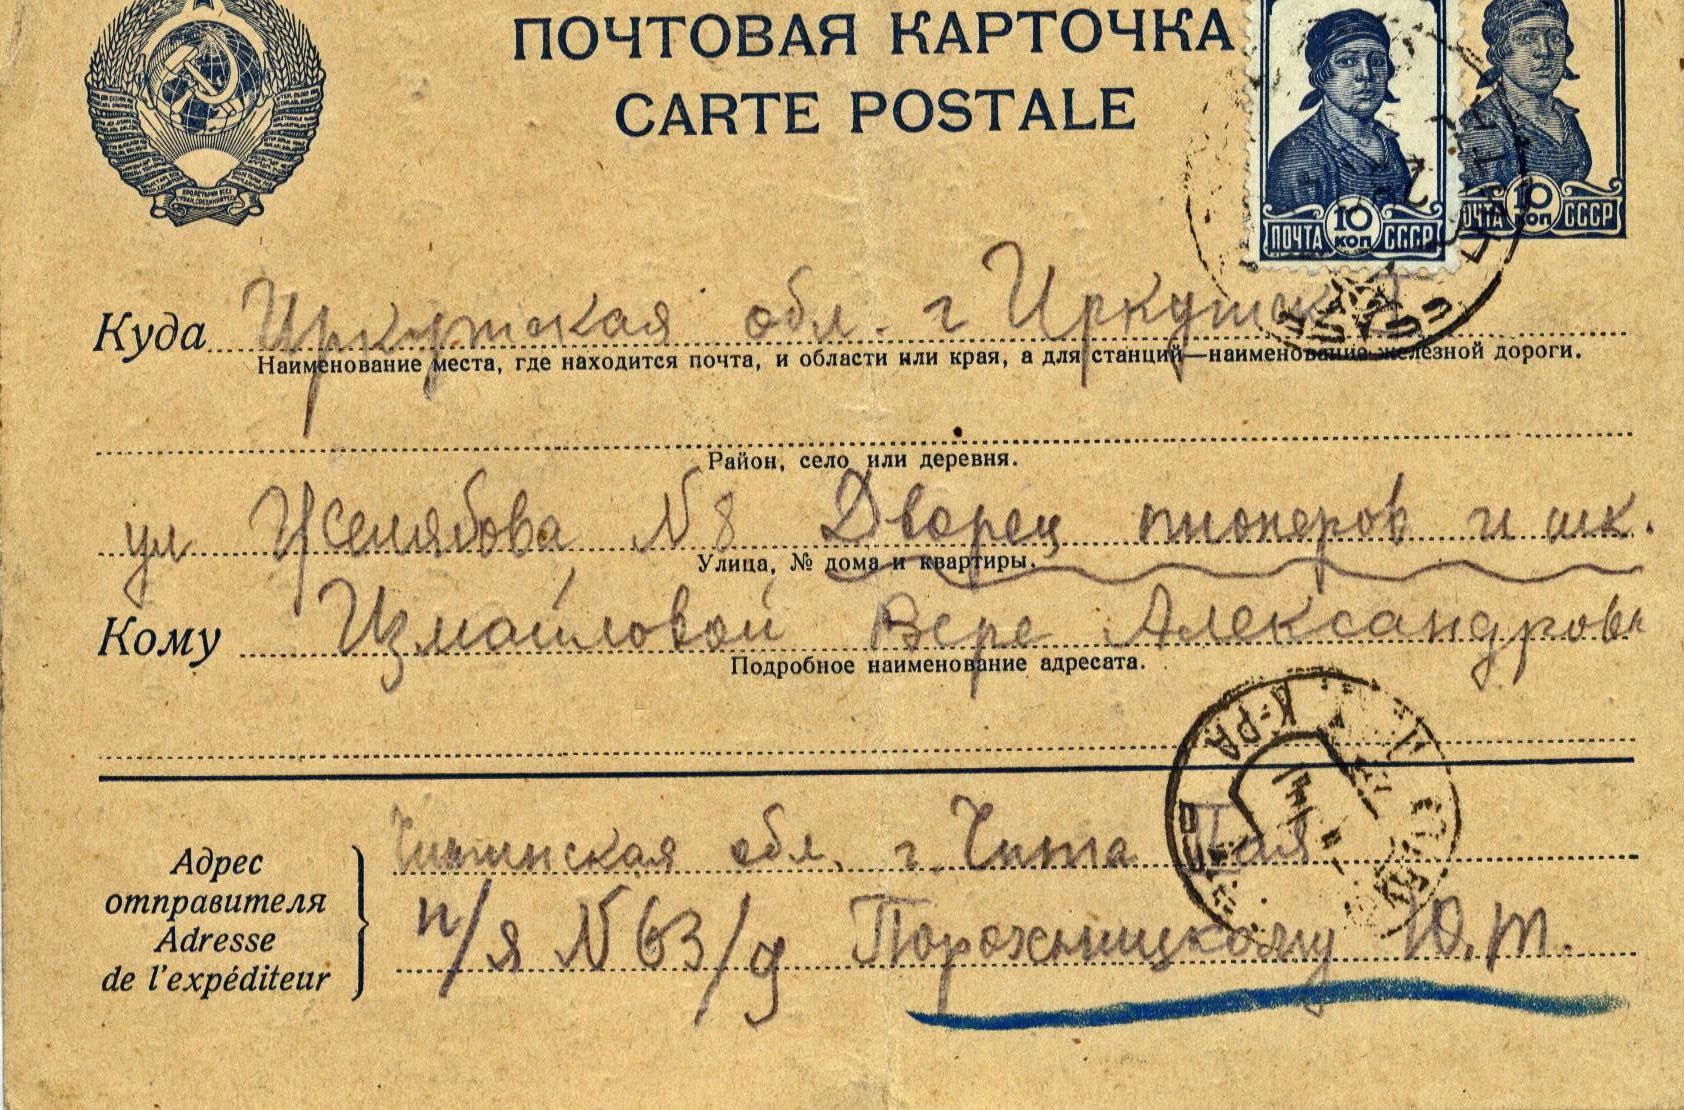 ПОЧТОВАЯ КАРТОЧКА
CARTE POSTALE
ПРОЛЕТАРИИ ВСЕХ СТРАН, СОЕДИНЯЙТЕСЬ
10 КОП ПОЧТА СССР
10 КОП ПОЧТА СССР
Куда Иркутская обл. г Иркутск
Наименование места, где находится почта, и области или края, а для станций—наименование железной дороги.
Район, село или деревня.
ул Желябова, N 8 Дворец пионеров и шк.
Улица, № дома и квартиры.
Кому Измайловой Вере Александровн
Подробное наименование адресата.
К-РА
Адрес отправителя
Adresse de l'expéditeur
Читинская обл. г. Чита II ая
п/я N 63/9 Порохницкому Ю.Т.